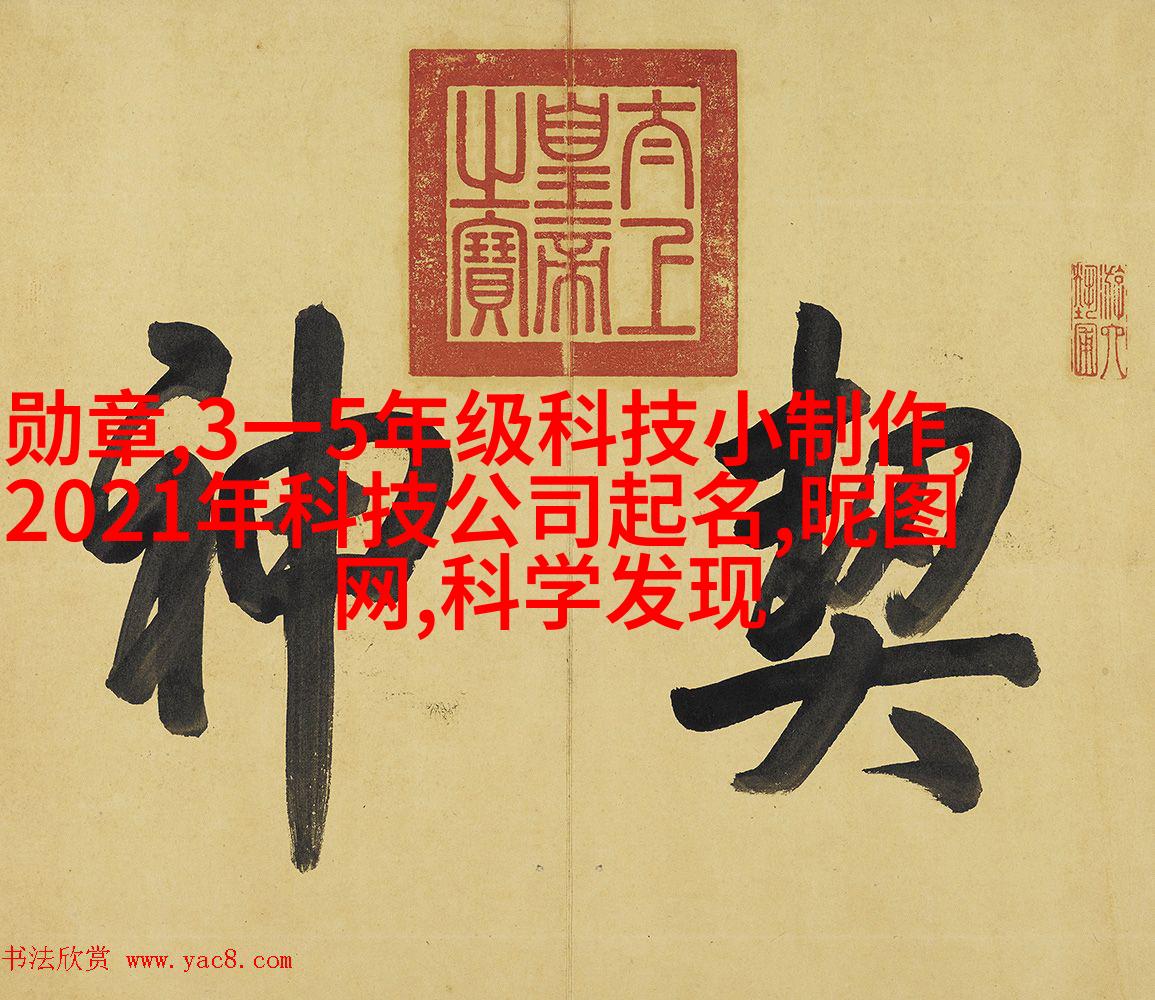 太上
皇帝
之寶
游六
藝圃
契神
勋章,3一5年级科技小制作,
2021年科技公司起名,昵图
网,科学发现
书法欣赏 www.yac8.com